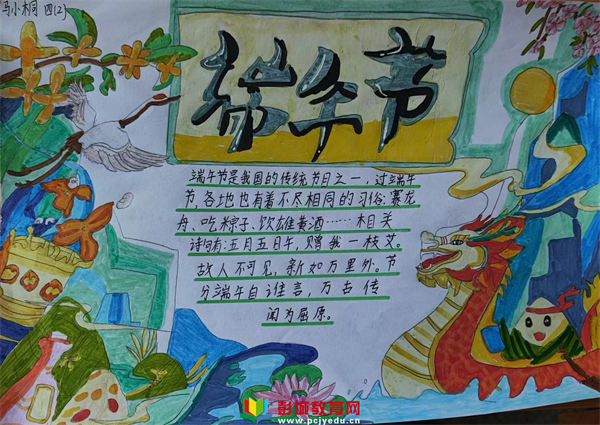 冯小桐 四(2)
端午节
端午节是我国的传统节日之一，过端午
节，各地也有着不尽相同的习俗：赛龙
舟、吃粽子、饮雄黄酒……相关
诗词有：五月五日午，赠我一枝艾。
故人不可见，新如万里外。节
分端午自谁言，万古传
闻为屈原。
彭城教育网
www.pcjyedu.cn